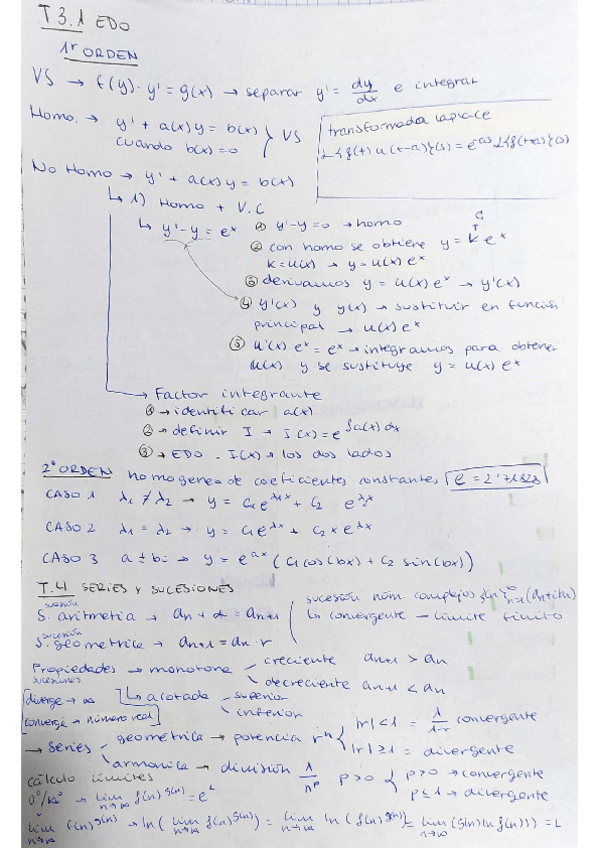 T3.1 EDO
1er ORDEN
VS → f(y)·y' = g(x) → separar y' = dy/dx e integrar
Homo. → y' + a(x)y = b(x) } VS
cuando b(x)=0
transformada laplace
L{f(t) u(t-a)}(s) = e^-as L{f(t+a)}(s)
No Homo → y' + a(x)y = b(x)
↳ 1) Homo + V.C
↳ y'-y = e^x ① y'-y=0 → homo
② con homo se obtiene y = k e^x
k = u(x) → y = u(x) e^x
③ derivamos y = u(x) e^x → y'(x)
④ y'(x) y y(x) → sustituir en función
principal → u(x) e^x
⑤ u'(x) e^x = e^x → integramos para obtener
u(x) y se sustituye y = u(x) e^x
→ Factor integrante
① → identificar a(x)
② → definir I → I(x) = e^∫a(x)dx
③ → EDO · I(x) → los dos lados
2º ORDEN homogenea de coeficientes constantes e = 2'7182
CASO 1 λ1 ≠ λ2 → y = c1 e^λ1x + c2 e^λ2x
CASO 2 λ1 = λ2 → y = c1 e^λx + c2 x e^λx
CASO 3 a ± bi → y = e^ax (c1 cos(bx) + c2 sin(bx))
T.4 SERIES Y SUCESIONES
sucesión
S. aritmetica → an + d = an+1
sucesión núm. complejos
convergente – limite finito
sucesión
S. geometrica → an+1 = an · r
Propiedades → monotona – creciente an+1 > an
sucesiones
decreciente an+1 < an
[diverge → ∞
converge → número real]
↳ acotada – superior
inferior
→ series – geometrica → potencia r^n { |r|<1 = 1/1-r convergente
|r|≥1 = divergente
armonica → división 1/n^p p>0 { p>0 → convergente
p≤1 → divergente
cálculo limites
lim n→∞ f(n)^g(n) = e^L
lim n→∞ f(n)^g(n) → ln(lim n→∞ f(n)^g(n)) = lim n→∞ ln(f(n)^g(n)) = lim n→∞ (g(n) ln f(n)) = L